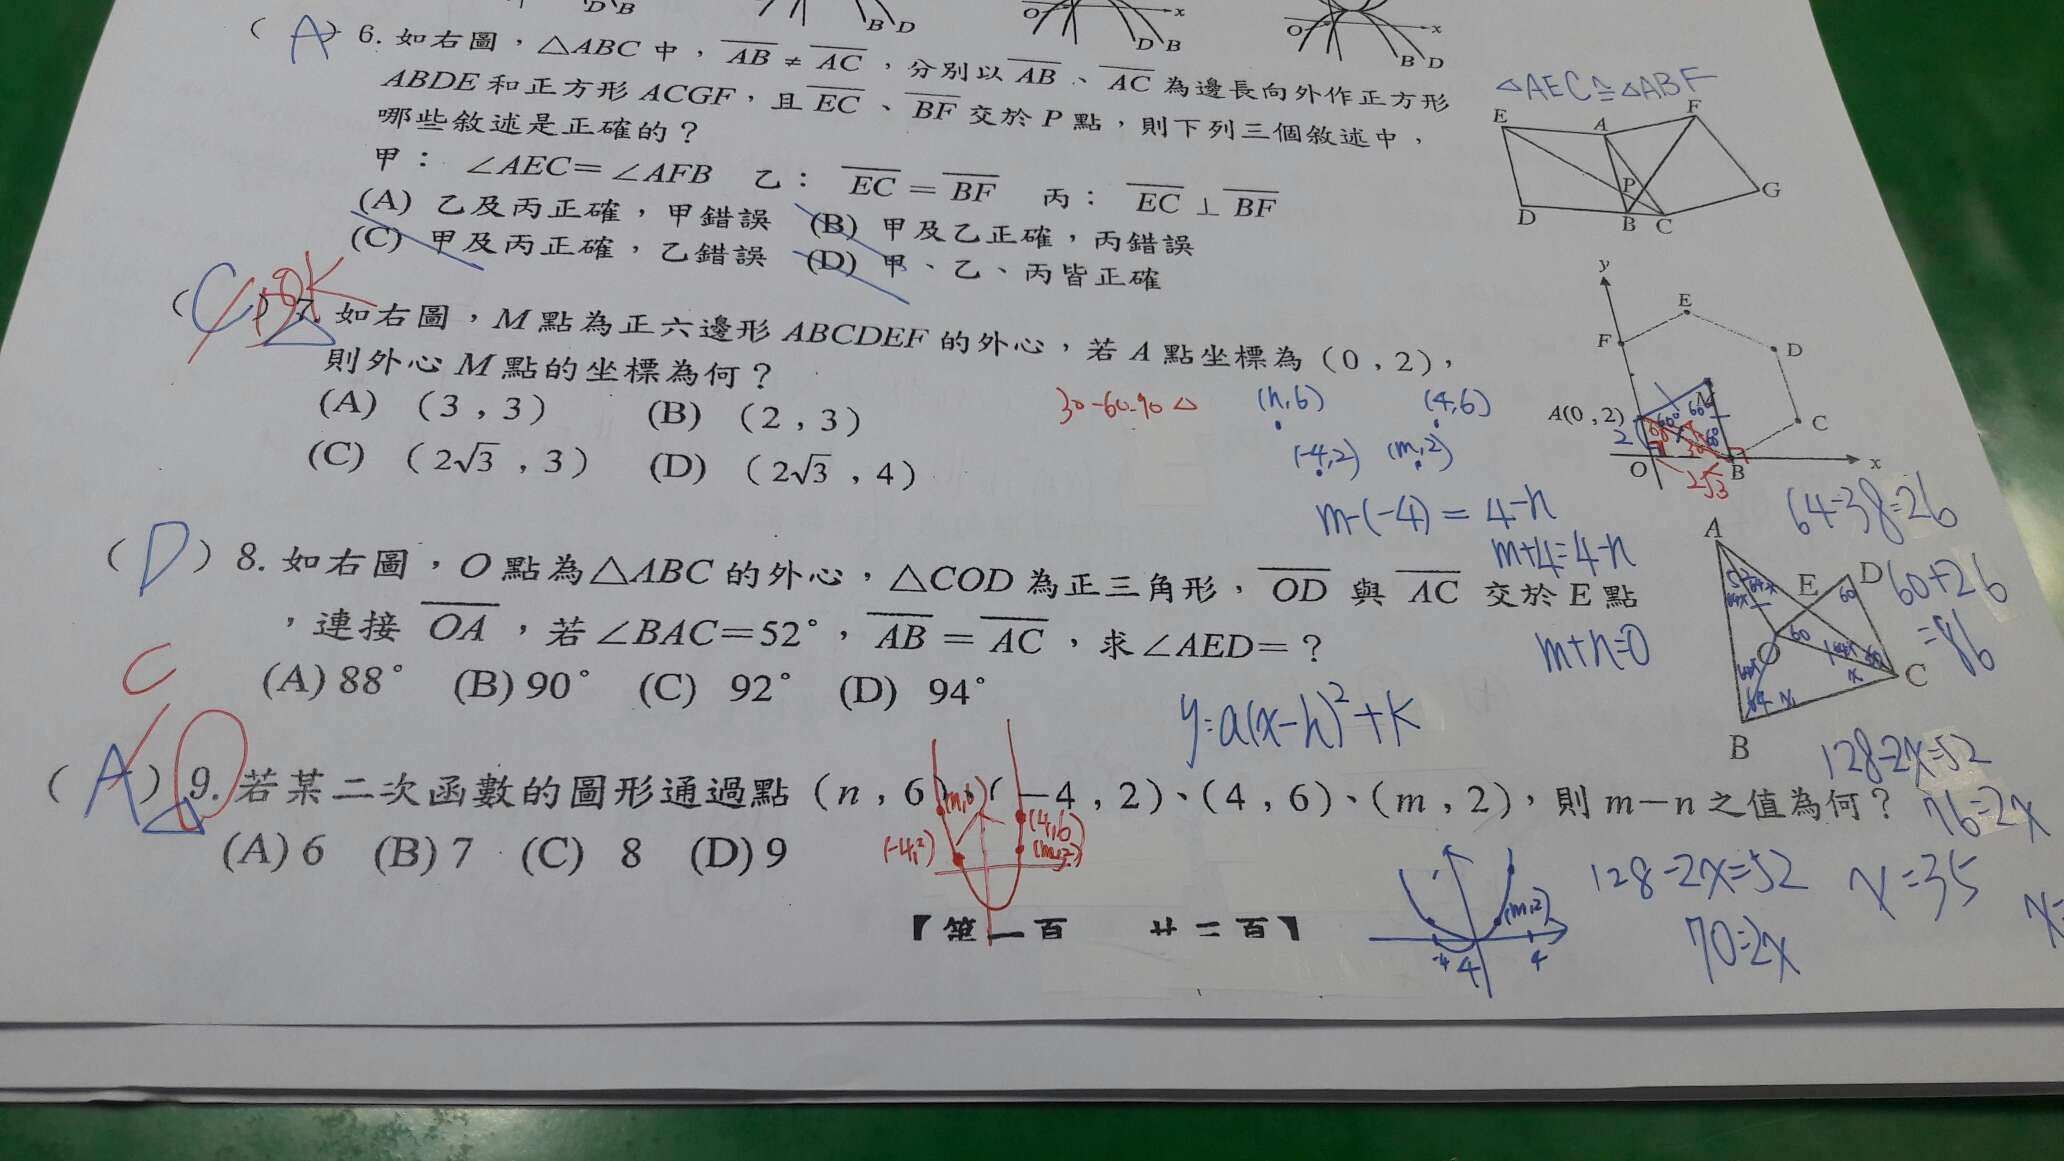 D B
B D
O x
D B
O x
B D
( A ) 6. 如右圖,△ABC 中, AB ≠ AC ,分別以 AB 、 AC 為邊長向外作正方形
ABDE 和正方形 ACGF,且 EC 、 BF 交於 P 點,則下列三個敘述中,
哪些敘述是正確的?
甲: ∠AEC=∠AFB 乙: EC = BF 丙: EC ⊥ BF
(A) 乙及丙正確,甲錯誤 (B) 甲及乙正確,丙錯誤
(C) 甲及丙正確,乙錯誤 (D) 甲、乙、丙皆正確
△AEC≅△ABF
E A F
P G
D B C
( C ) 7. 如右圖,M 點為正六邊形 ABCDEF 的外心,若 A 點坐標為(0,2),
則外心 M 點的坐標為何?
(A) (3,3) (B) (2,3)
(C) (2√3,3) (D) (2√3,4)
30-60-90 △
(n,6) (4,6)
(-4,2) (m,2)
m-(-4) = 4-n
m+4=4-n
m+n=0
y
E
F D
M
A(0,2) C
2 60 60 60 30
O B x
2√3
64-38=26
60+26
=86
( D ) 8. 如右圖,O 點為△ABC 的外心,△COD 為正三角形, OD 與 AC 交於 E 點
,連接 OA ,若∠BAC=52°, AB = AC ,求∠AED=?
(A) 88° (B) 90° (C) 92° (D) 94°
A
E D
60
60
O C
B
y=a(x-h)²+k
128-2x=52
76=2x
C
( A ) 9. 若某二次函數的圖形通過點(n,6)、(-4,2)、(4,6)、(m,2),則 m-n 之值為何?
(A) 6 (B) 7 (C) 8 (D) 9
(n,6)
(-4,2) (4,6)
(m,2)
(m,2)
-4 4 4
128-2x=52
70=2x
x=35
【第一頁 共二頁】